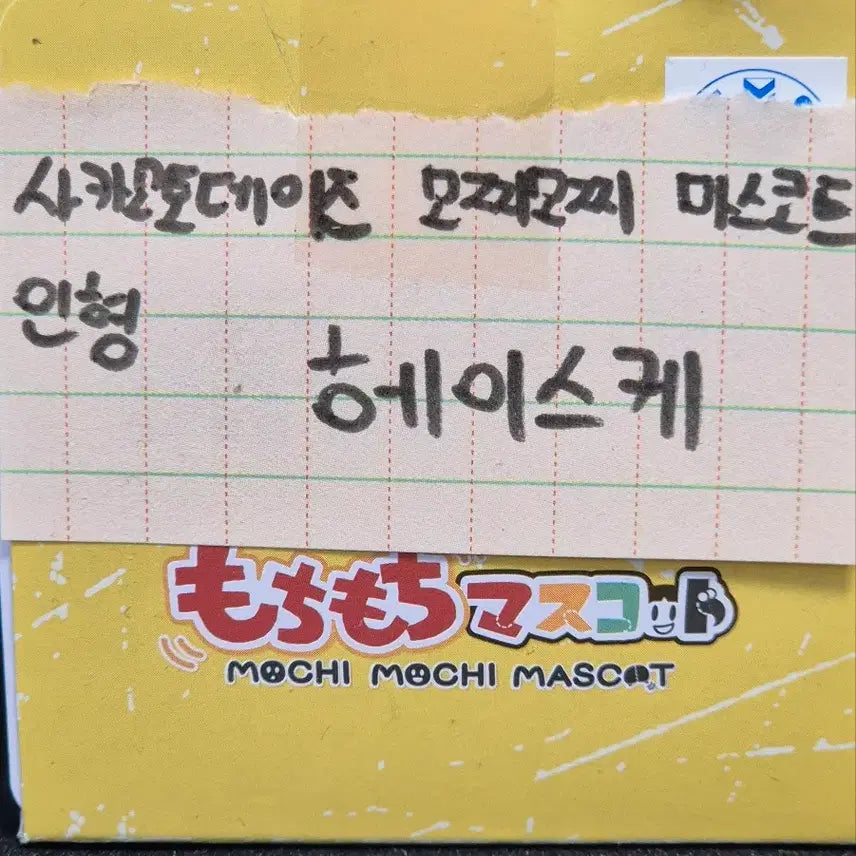 사카모토데이즈 모찌모찌 마스코트
인형
헤이스케
もちもちマスコット
MOCHI MOCHI MASCOT